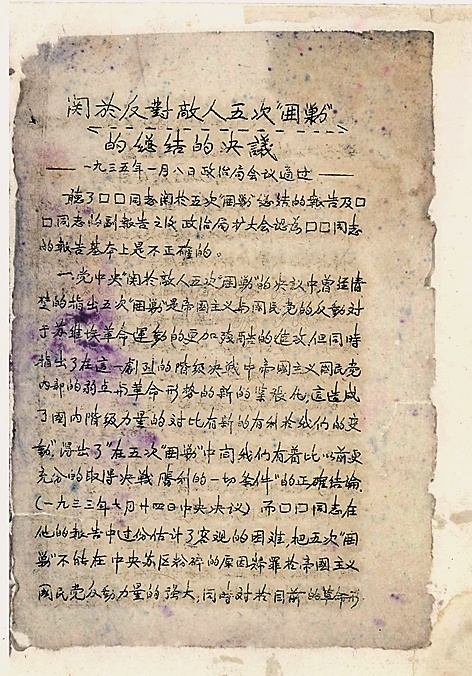 関於反對敵人五次“囲剿”
的总結的决議
——一九三五年一月八日政治局会议通过——
听了口口同志関於五次“囲剿”总結的報告及口
口同志的副報告之后政治局扩大会认为口口同志
的報告基本上是不正確的。
一、党中央“関於敵人五次“囲剿”的决议中曾经清
楚的指出五次“囲剿”是帝國主义与國民党的反動对
于苏維埃革命運動的更加残酷的進攻，但同時
指出了在這一劇烈的階级决戰中帝國主义國民党
内部的弱点与革命形势的新的緊張化，這造成
了國内階级力量的对比有新的有利於我们的变
動”，得出了“在五次“囲剿”中间我们有着比以前更
充分的取得决戰勝利的一切条件”的正確結論
（一九三三年七月廿四日中央决议） 而口口同志在
他的報告中过份估计了客观的困难，把五次“囲
剿”不能在中央苏区粉碎的原因归罪於帝國主义
國民党反動力量的强大，同時对於目前的革命形